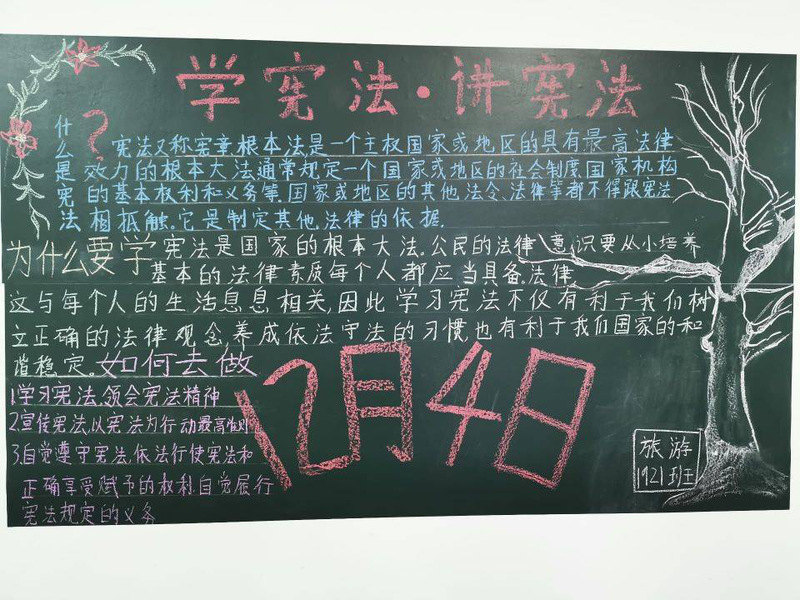 学宪法·讲宪法
什么是宪法?
宪法又称宪章根本法是一个主权国家或地区的具有最高法律
效力的根本大法通常规定一个国家或地区的社会制度国家机构
的基本权利和义务等,国家或地区的其他法令、法律等都不得跟宪法
相抵触.它是制定其他法律的依据.
为什么要学宪法是国家的根本大法.公民的法律意识要从小培养
基本的法律素质每个人都应当具备.法律
这与每个人的生活息息相关,因此学习宪法不仅有利于我们树
立正确的法律观念养成依法守法的习惯也有利于我们国家的和
谐稳定。如何去做
1.学习宪法、领会宪法精神
2.宣传宪法,以宪法为行动最高准则
3.自觉遵守宪法、依法行使宪法和
正确享受赋予的权利自觉履行
宪法规定的义务
12月4日
旅游
1921班